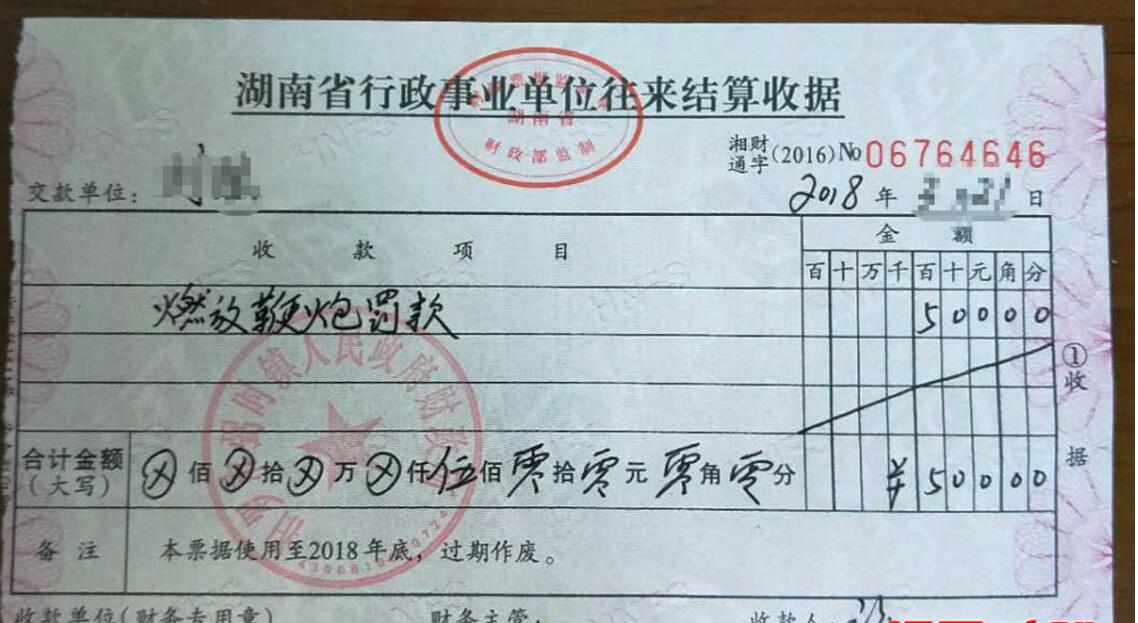 湖南省行政事业单位往来结算收据
湖南省
财政部监制
湘财通字(2016)No 06764646
交款单位:
2018年 日
收款项目 金额
百十万千百十元角分
燃放鞭炮罚款 50000
①收据
合计金额(大写) ⊗佰⊗拾⊗万⊗仟伍佰零拾零元零角零分 ¥50000
备注 本票据使用至2018年底,过期作废。
镇人民政府财
收款单位(财务专用章) 财务主管: 收款人: